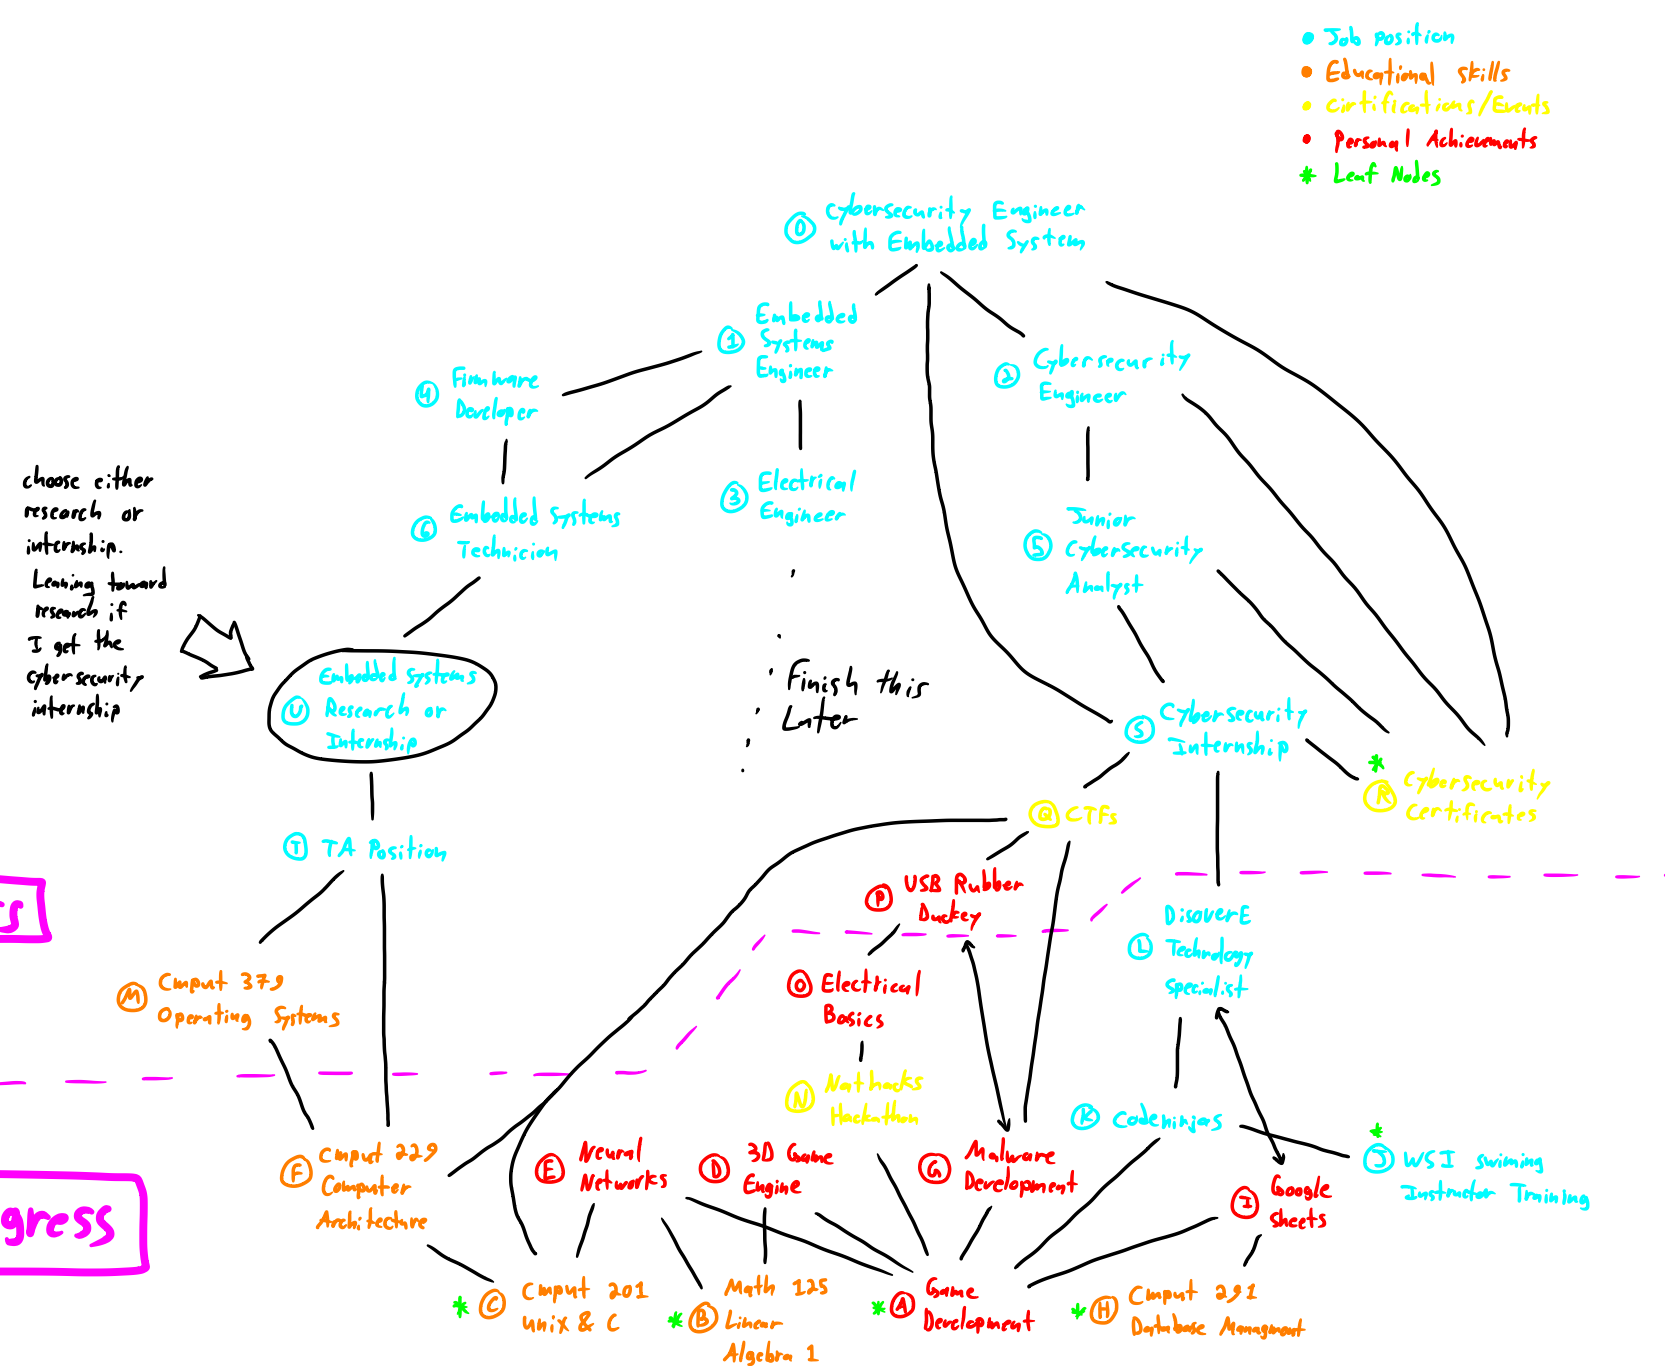 Job position
Educational skills
Cirtifications/Events
Personal Achievements
* Leaf Nodes
0 Cybersecurity Engineer
with Embedded System
1 Embedded
Systems
Engineer
2 Cybersecurity
Engineer
4 Firmware
Developer
3 Electrical
Engineer
6 Embedded Systems
Technician
5 Junior
Cybersecurity
Analyst
choose either
research or
internship.
Leaning toward
research if
I get the
cybersecurity
internship
U Embedded Systems
Research or
Internship
Finish this
Later
S Cybersecurity
Internship
* R Cybersecurity
Certificates
Q CTFs
T TA Position
P USB Rubber
Duckey
L DisoverE
Technology
Specialist
M Cmput 379
Operating Systems
O Electrical
Basics
N Nathacks
Hackathon
K Codeninjas
F Cmput 229
Computer
Architecture
E Neural
Networks
D 3D Game
Engine
G Malware
Development
I Google
Sheets
* J WSI swiming
Instructor Training
gress
* C Cmput 201
Unix & C
* B Math 125
Linear
Algebra 1
* A Game
Development
* H Cmput 291
Database Managment